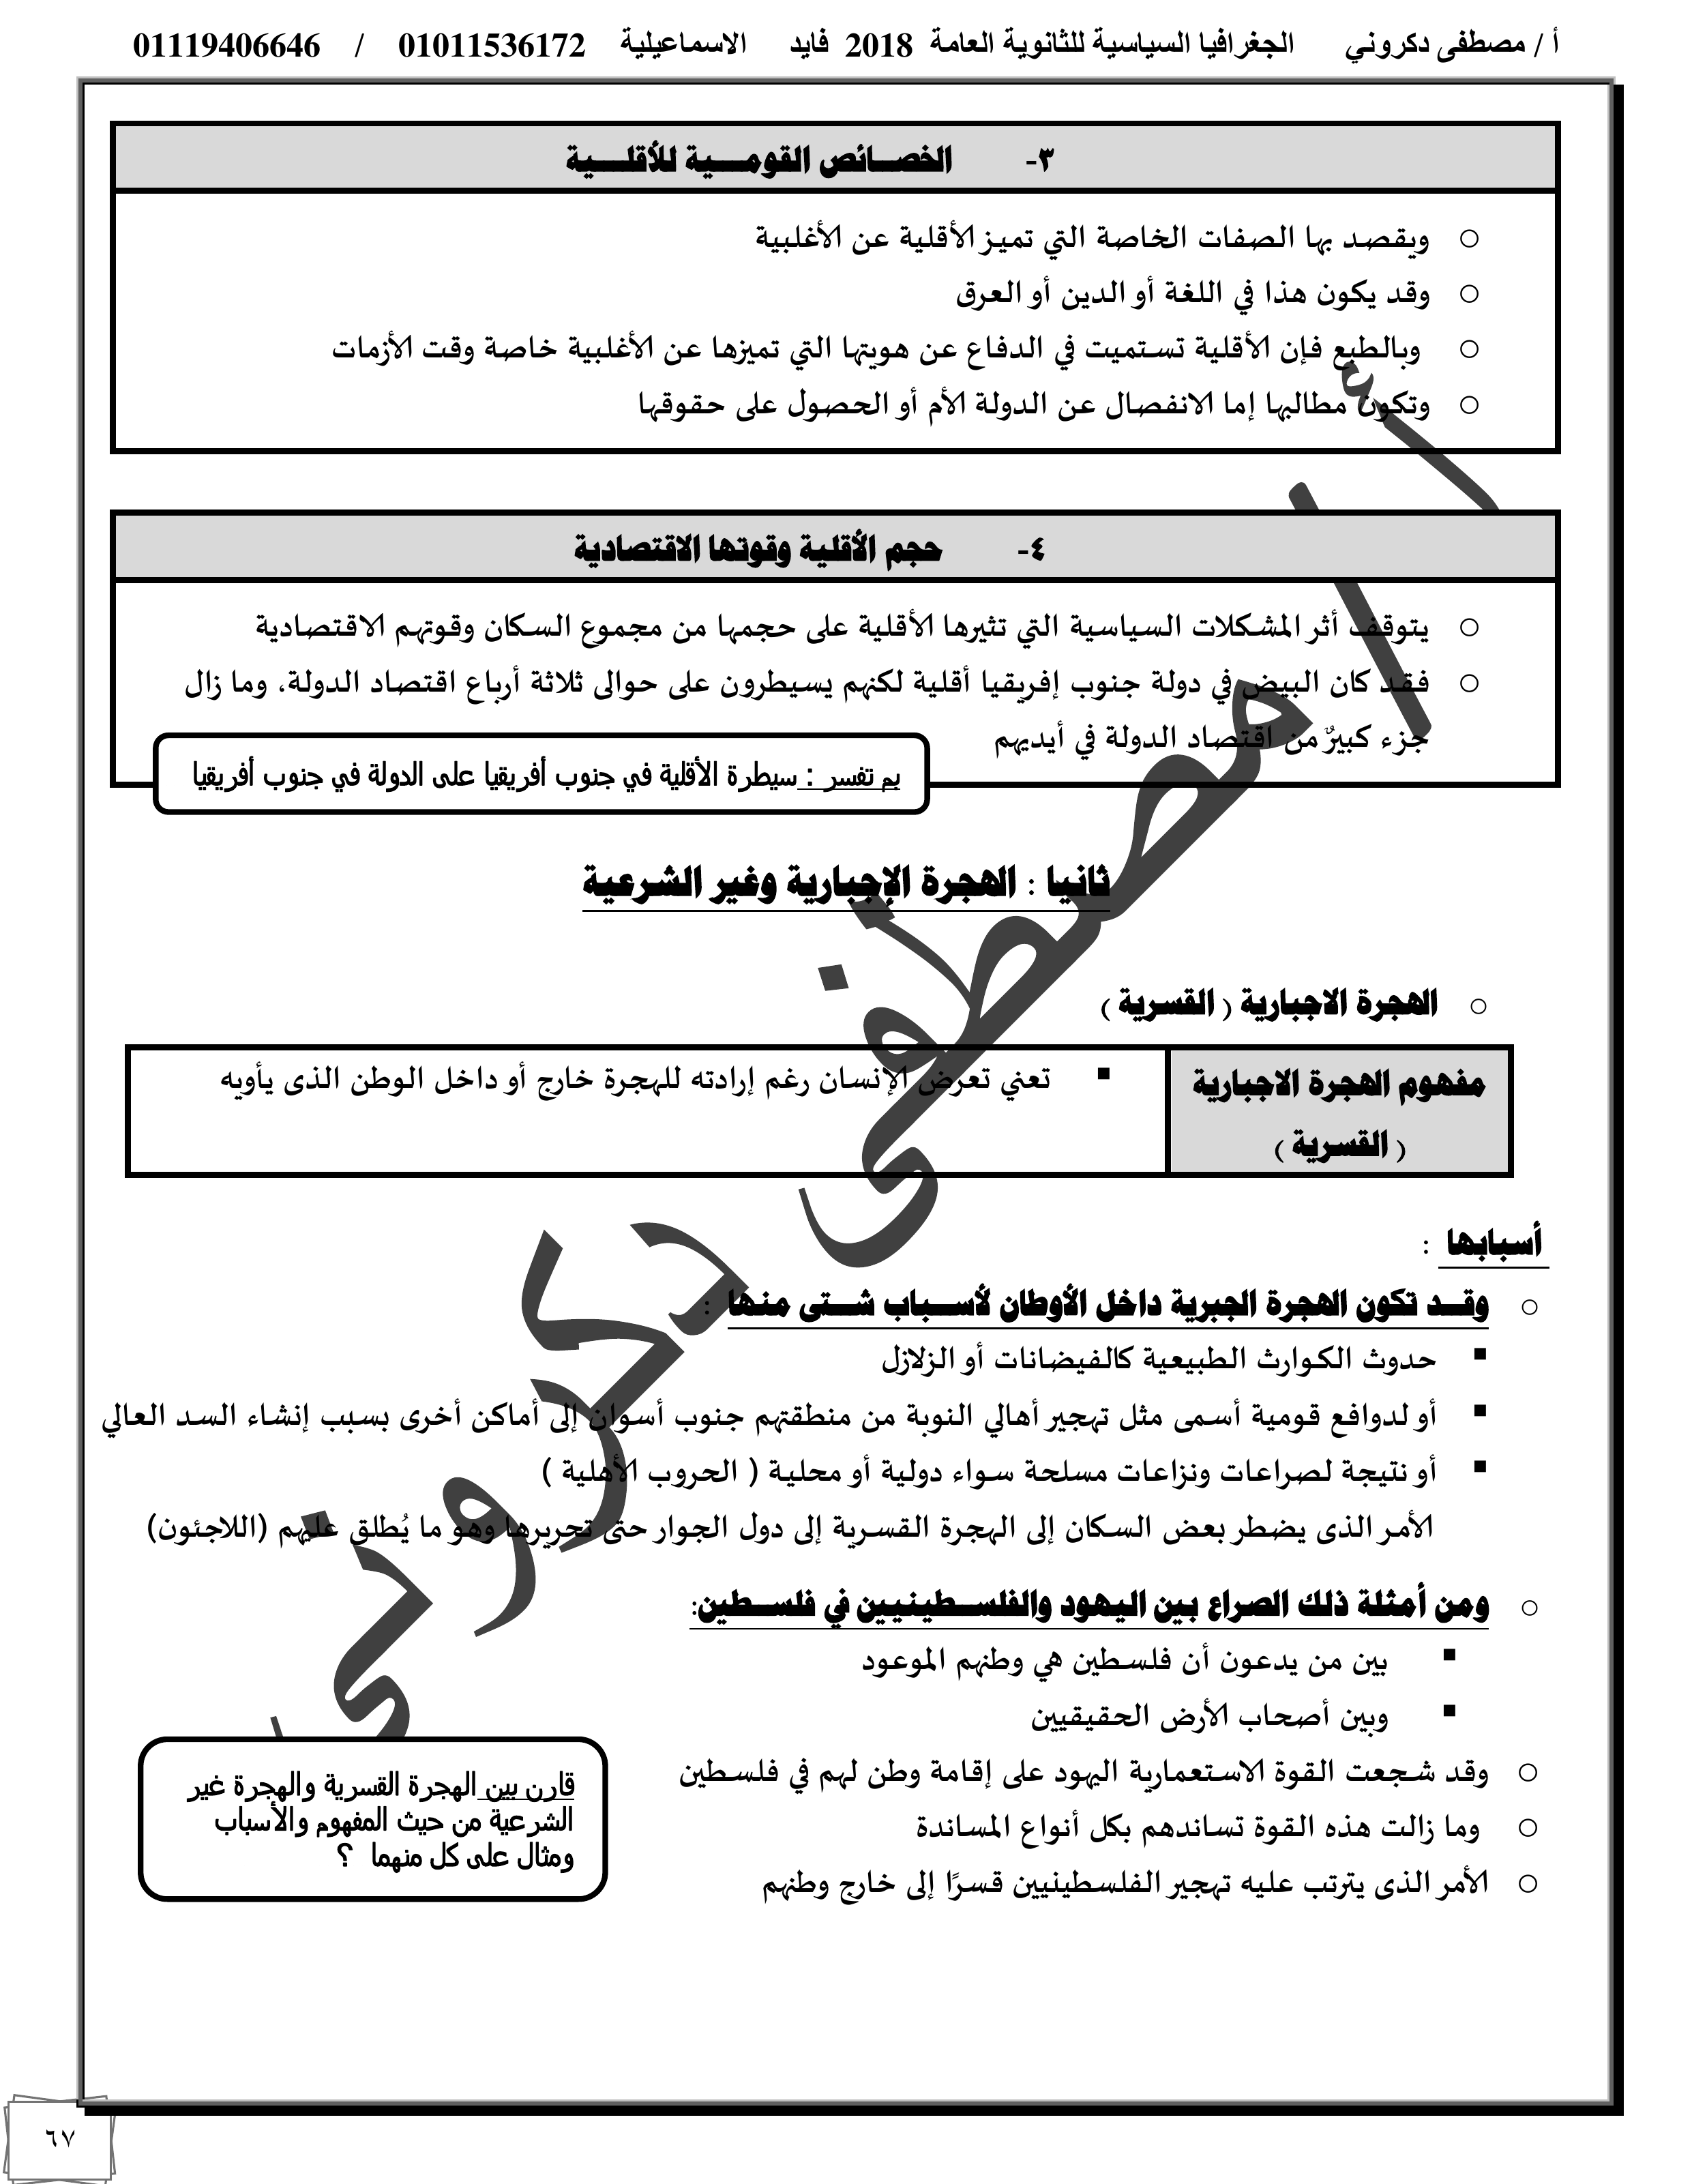 أ / مصطفى دكروني الجغرافيا السياسية للثانوية العامة 2018 فايد الاسماعيلية 01011536172 / 01119406646
٣- الخصــائص القومــــية للأقلــــية
ويقصد بها الصفات الخاصة التي تميز الأقلية عن الأغلبية
وقد يكون هذا في اللغة أو الدين أو العرق
وبالطبع فإن الأقلية تستميت في الدفاع عن هويتها التي تميزها عن الأغلبية خاصة وقت الأزمات
وتكون مطالبها إما الانفصال عن الدولة الأم أو الحصول على حقوقها
٤- حجم الأقلية وقوتها الاقتصادية
يتوقف أثر المشكلات السياسية التي تثيرها الأقلية على حجمها من مجموع السكان وقوتهم الاقتصادية
فقد كان البيض في دولة جنوب إفريقيا أقلية لكنهم يسيطرون على حوالى ثلاثة أرباع اقتصاد الدولة، وما زال
جزء كبيرٌ من اقتصاد الدولة في أيديهم
بم تفسر : سيطرة الأقلية في جنوب أفريقيا على الدولة في جنوب أفريقيا
ثانيا : الهجرة الإجبارية وغير الشرعية
الهجرة الاجبارية ( القسرية )
مفهوم الهجرة الاجبارية
( القسرية )
تعني تعرض الإنسان رغم إرادته للهجرة خارج أو داخل الوطن الذى يأويه
أسبابها :
وقــد تكون الهجرة الجبرية داخل الأوطان لأســـباب شـــتى منها :
حدوث الكوارث الطبيعية كالفيضانات أو الزلازل
أو لدوافع قومية أسمى مثل تهجير أهالي النوبة من منطقتهم جنوب أسوان إلى أماكن أخرى بسبب إنشاء السد العالي
أو نتيجة لصراعات ونزاعات مسلحة سواء دولية أو محلية ( الحروب الأهلية )
الأمر الذى يضطر بعض السكان إلى الهجرة القسرية إلى دول الجوار حتى تحريرها وهو ما يُطلق عليهم (اللاجئون)
ومن أمثلة ذلك الصراع بين اليهود والفلســـطينيين في فلســـطين:
بين من يدعون أن فلسطين هي وطنهم الموعود
وبين أصحاب الأرض الحقيقيين
وقد شجعت القوة الاستعمارية اليهود على إقامة وطن لهم في فلسطين
وما زالت هذه القوة تساندهم بكل أنواع المساندة
الأمر الذى يترتب عليه تهجير الفلسطينيين قسرًا إلى خارج وطنهم
قارن بين الهجرة القسرية والهجرة غير
الشرعية من حيث المفهوم والأسباب
ومثال على كل منهما ؟
أ / مصطفى دكروني
٦٧